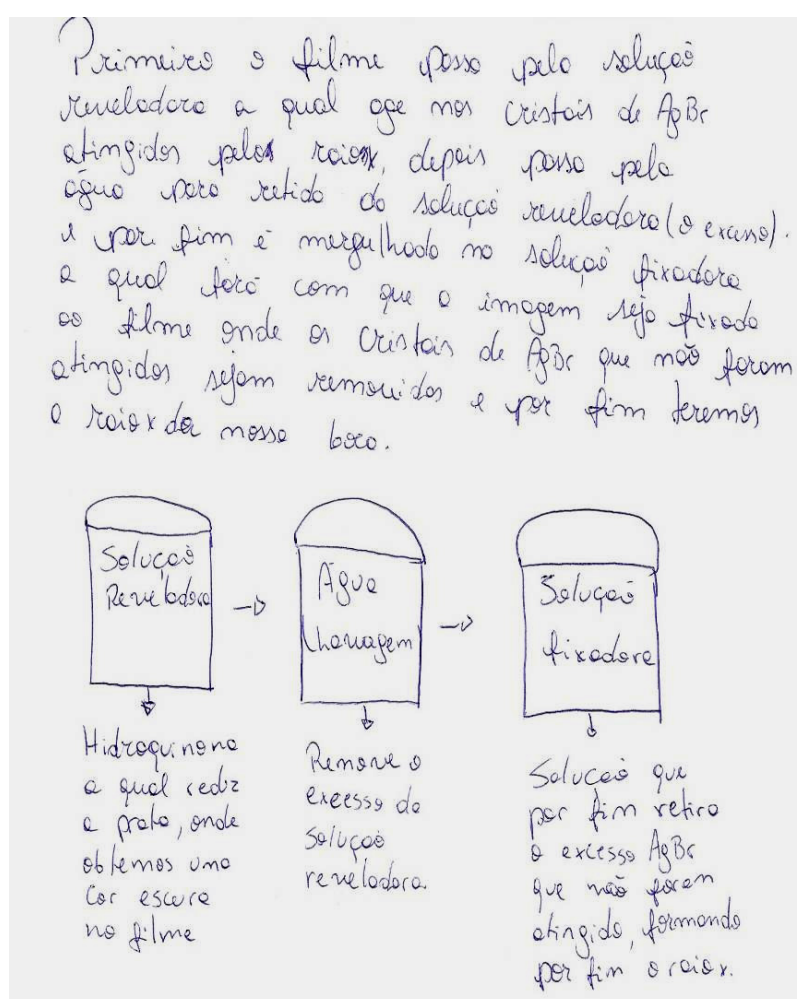 Primeiro o filme passa pela solução
reveladora a qual age nos cristais de AgBr
atingidos pelos raiosx, depois passa pela
água para retida da solução reveladora (o excesso).
e por fim é mergulhado na solução fixadora
a qual fará com que a imagem seja fixada
ao filme onde os cristais de AgBr que não foram
atingidos sejam removidos e por fim teremos
o raio x da nossa boca.
Solução
Reveladora
Água
Lavagem
Solução
fixadora
Hidroquinona
a qual reduz
a prata, onde
obtemos uma
cor escura
no filme
Remove o
excesso da
solução
reveladora.
Solução que
por fim retira
o excesso AgBr
que não foram
atingido, formando
por fim o raio x.